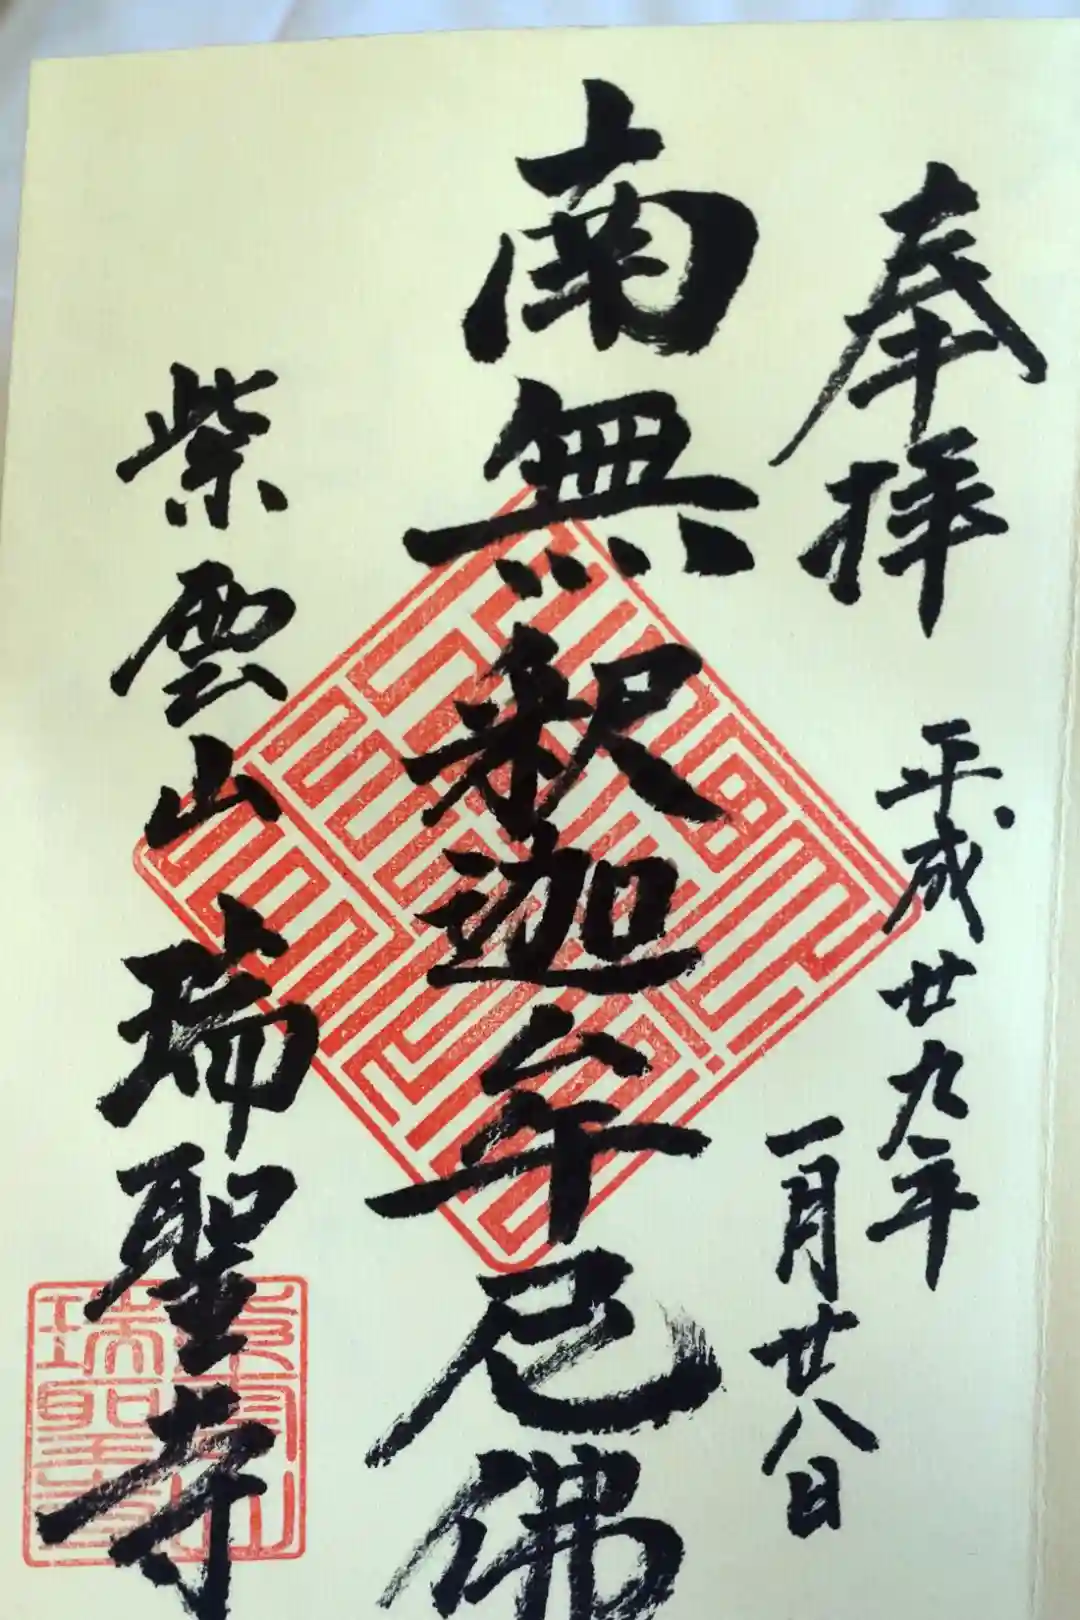 奉拝
平成廿九年
一月廿八日
南無釈迦牟尼佛
紫雲山
瑞聖寺